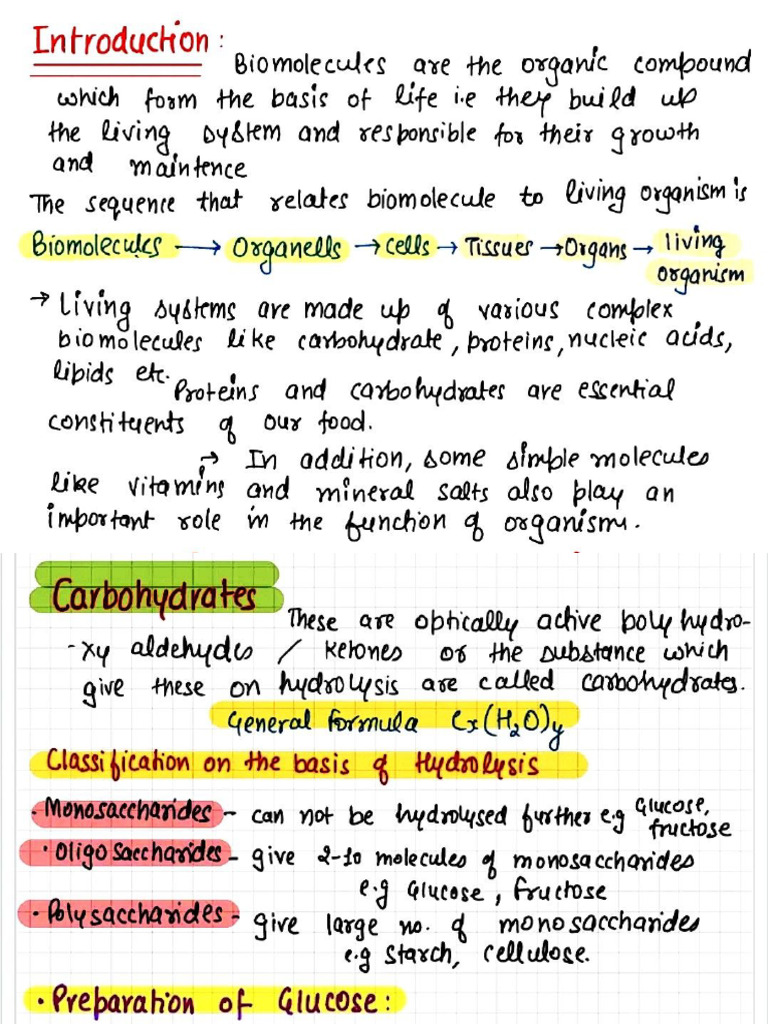 Introduction:
Biomolecules are the organic compound
which form the basis of life i.e they build up
the living system and responsible for their growth
and maintence
The sequence that relates biomolecule to living organism is
Biomolecules → Organells → cells → Tissues → Organs → living
organism
→ Living systems are made up of various complex
biomolecules like carbohydrate, proteins, nucleic acids,
lipids etc.
Proteins and carbohydrates are essential
constituents of our food.
→ In addition, some simple molecules
like vitamins and mineral salts also play an
important role in the function of organism.
Carbohydrates
These are optically active polyhydro-
-xy aldehydes / ketones or the substance which
give these on hydrolysis are called carbohydrates.
General Formula Cx(H2O)y
Classification on the basis of Hydrolysis
· Monosaccharides - can not be hydrolysed further e.g Glucose,
fructose
· Oligosaccharides - give 2-10 molecules of monosaccharides
e.g Glucose, fructose
· Polysaccharides - give large no. of monosaccharides
e.g starch, cellulose.
· Preparation of Glucose: